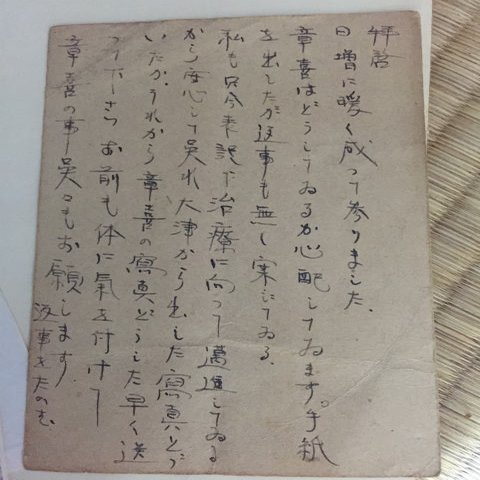 拝啓
日増に暖く成って参りました、
章喜はどうしてゐるか心配してゐます。手紙
を出したが返事も無く案じてゐる、
私も只今来診で治療に向って邁進してゐる
から安心して呉れ大津から出した寫真とゞ
いたか、それから章喜の寫真どうした早く送
って下さいお前も体に氣を付けて
章喜の事呉々もお願します、
返事をたのむ、